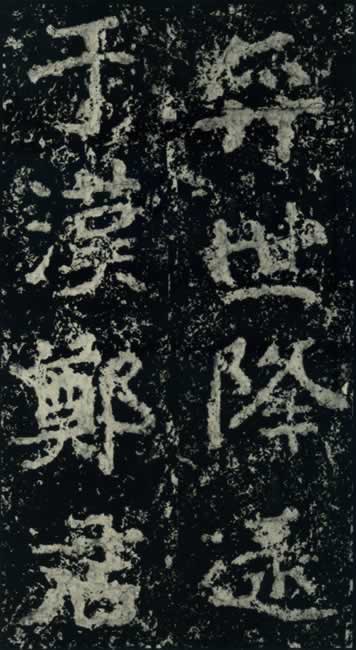 奕世降逮
于漢鄭君